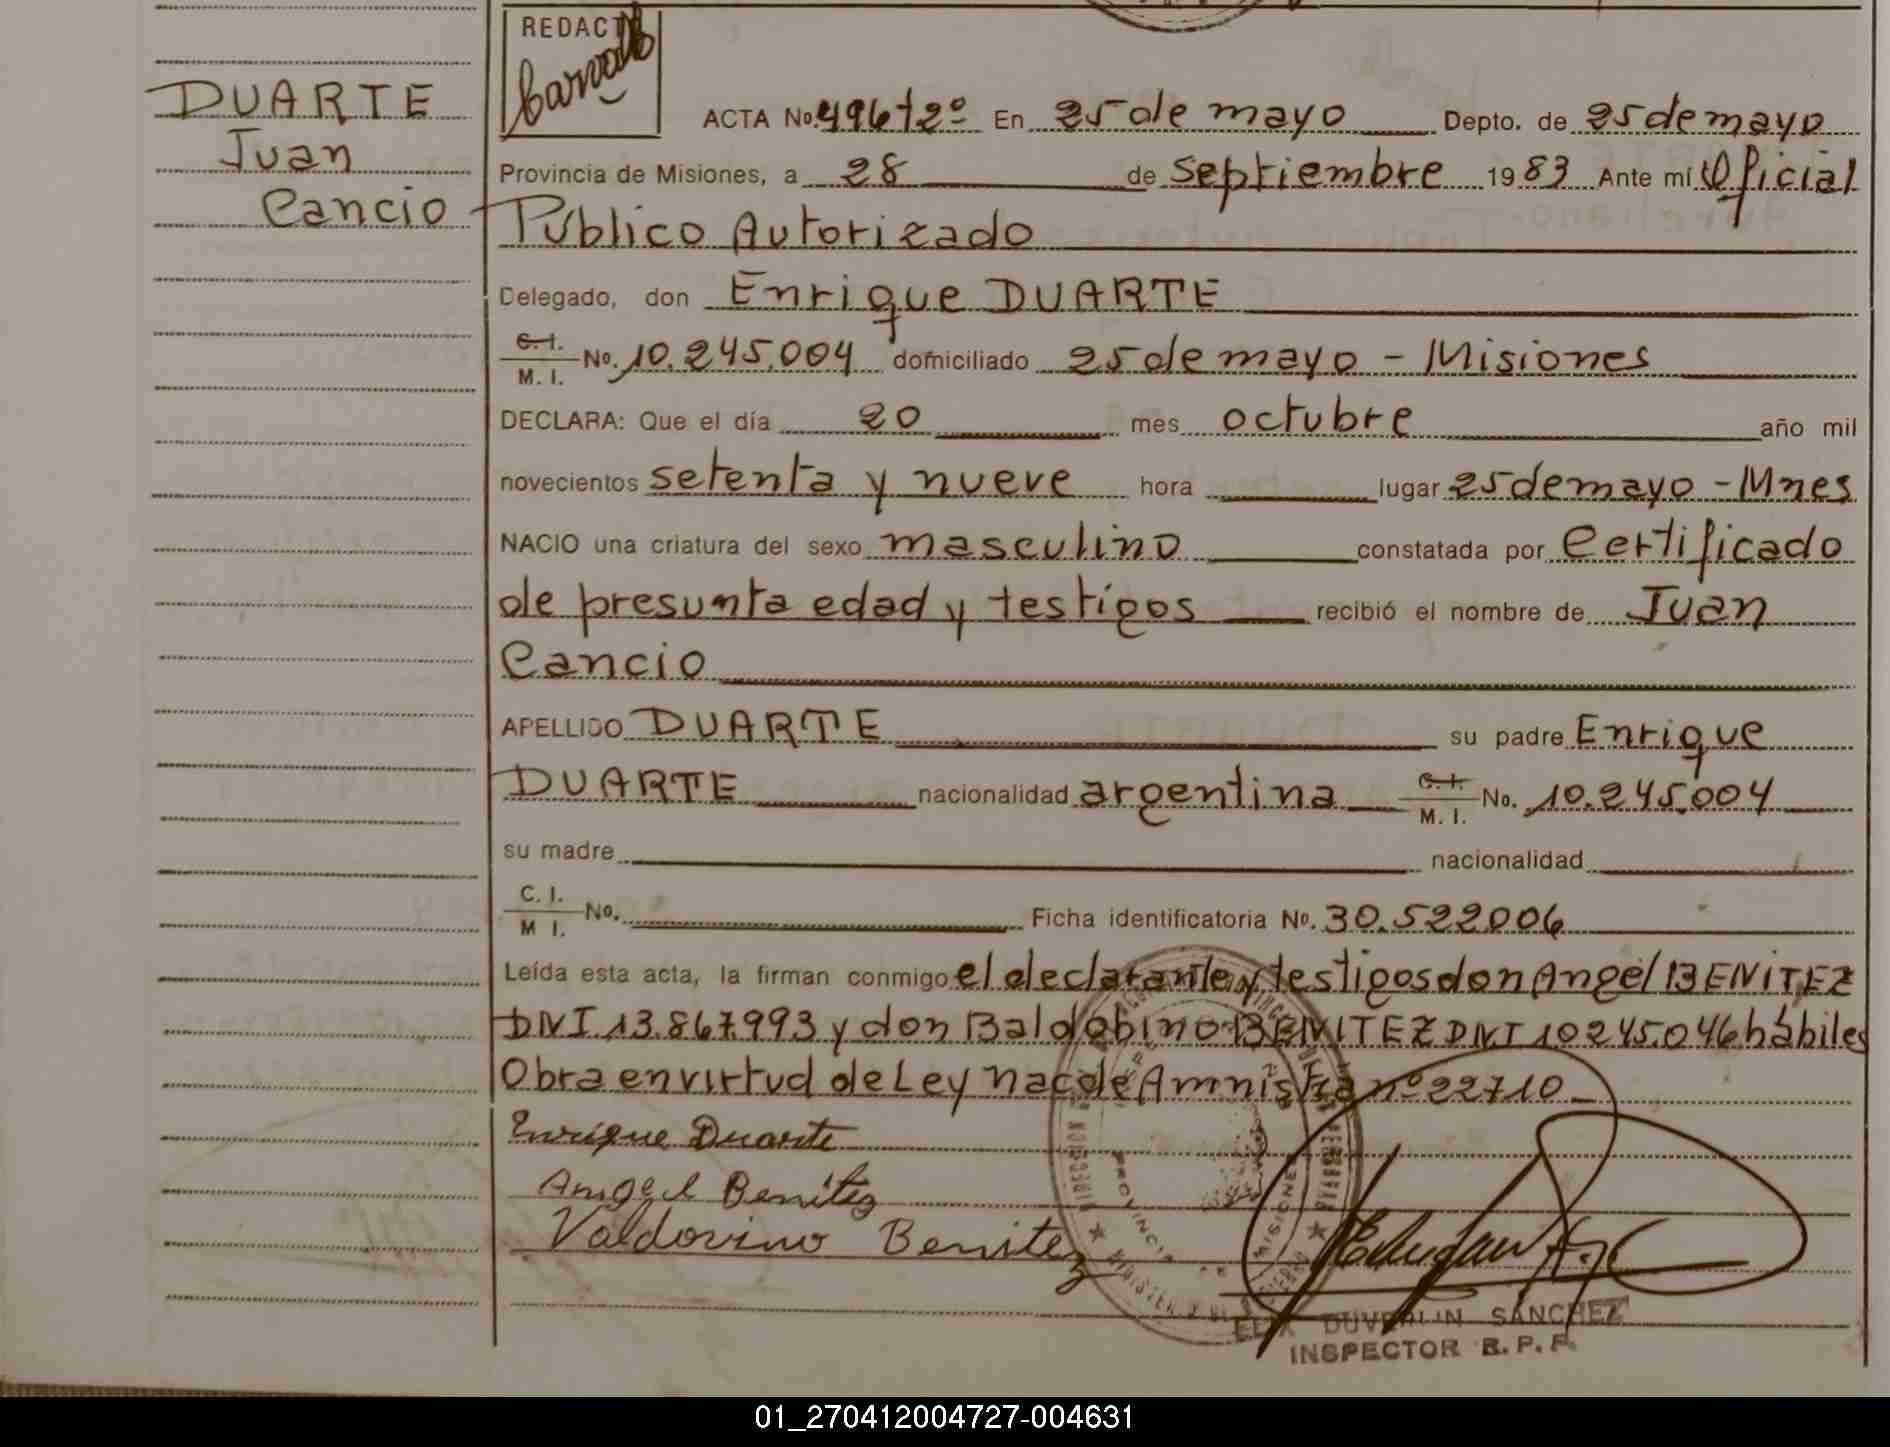 REDACTÓ
DUARTE
Juan
Cancio
ACTA No. 496 t 2º En 25 de mayo Depto. de 25 de mayo
Provincia de Misiones, a 28 de septiembre 1983 Ante mí Oficial
Público Autorizado
Delegado, don Enrique DUARTE
C. I.
M. I. No. 10.245.004 domiciliado 25 de mayo - Misiones
DECLARA: Que el día 20 mes octubre año mil
novecientos setenta y nueve hora lugar 25 de mayo - Mnes
NACIO una criatura del sexo masculino constatada por Certificado
de presunta edad y testigos recibió el nombre de Juan
Cancio
APELLIDO DUARTE su padre Enrique
DUARTE nacionalidad argentina C. I.
M. I. No. 10.245.004
su madre nacionalidad
C. I.
M I. No. Ficha identificatoria No. 30.522006
Leída esta acta, la firman conmigo el declarante y testigos don Angel BENITEZ
DNI 13.867.993 y don Baldobino BENITEZ DNI 10245.046 hábiles
Obra en virtud de Ley Nac de Amnistia nº 22710
Enrique Duarte
Angel Benitez
Valdovino Benitez
PROVINCIA MISIONES
DUVERLIN SANCHEZ
INSPECTOR R. P. P.
01_270412004727-004631